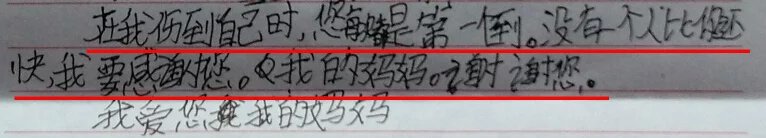 在我伤到自己时,您每是第一倒。没有个人比你还
快,我要感谢您。我的妈妈。谢谢您。
我爱您我的妈妈